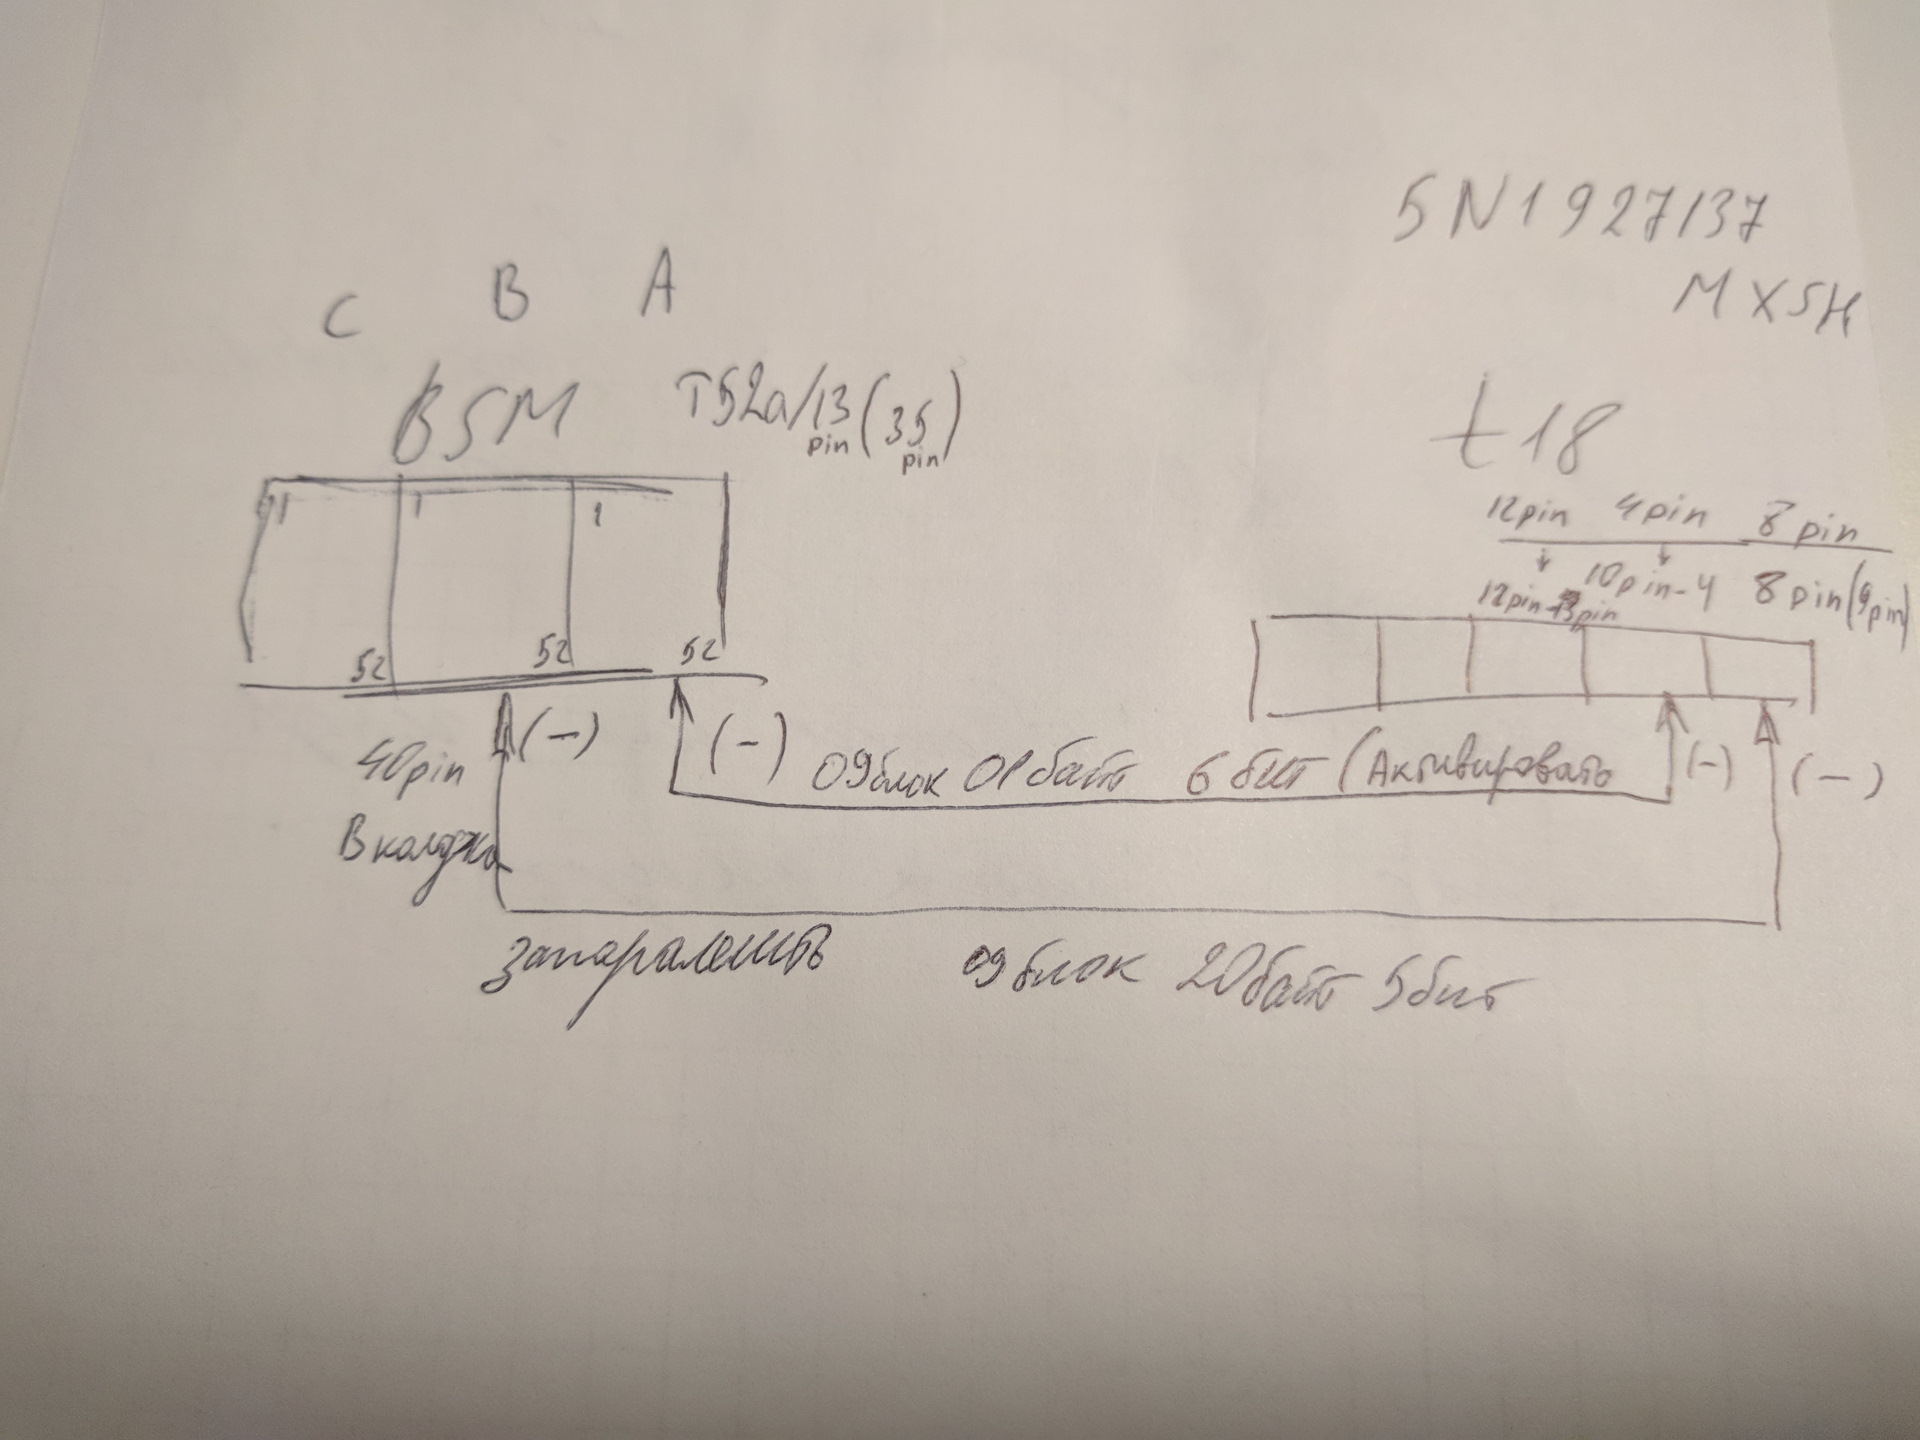 5N1927137
MX5H
C B A
BSM
T52a/13 pin (35 pin)
t18
12pin 4pin 8pin
12pin-13pin 10pin-4 8pin(9pin)
1 1 1
52 52 52
(-) (-) (-) (-)
40pin
09блок 01байт 6бит (Активировать
В колодке
запаралелить 09блок 20байт 5бит